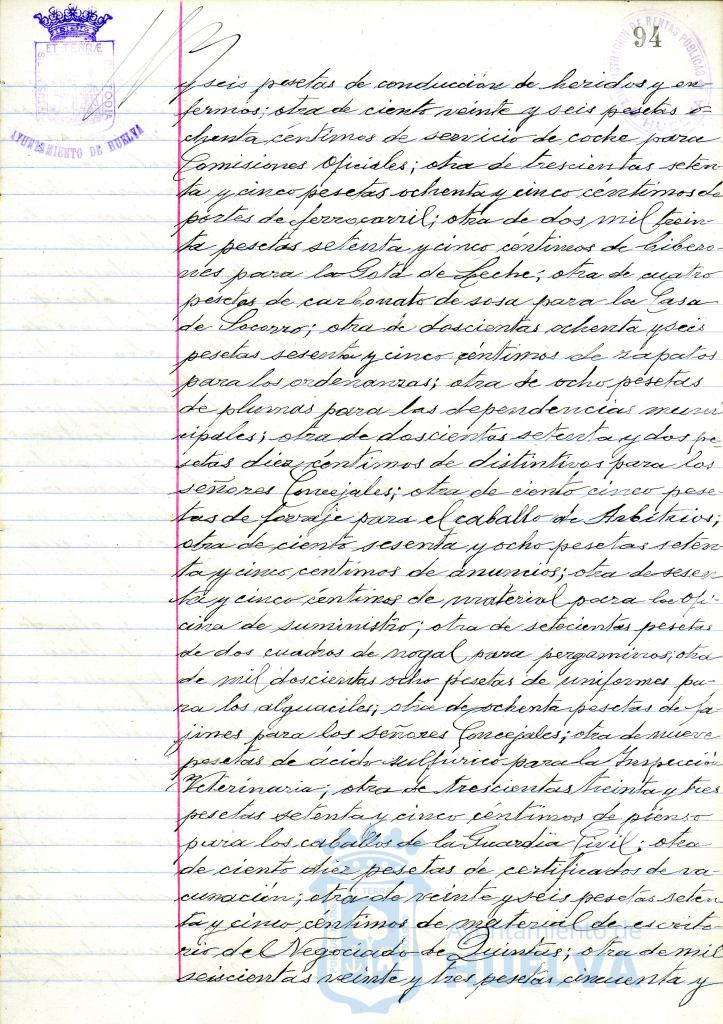 94
AYUNTAMIENTO DE HUELVA
y seis pesetas de conducción de heridos y en-
fermos; otra de ciento veinte y seis pesetas o-
chenta céntimos de servicio de coche para
Comisiones Oficiales; otra de trescientas seten-
ta y cinco pesetas ochenta y cinco centimos de
portes de ferrocarril; otra de dos mil trein-
ta pesetas setenta y cinco centimos de bibero-
nes para la Gota de Leche; otra de cuatro
pesetas de carbonato de sosa para la Casa
de Socorro; otra de doscientas ochenta y seis
pesetas sesenta y cinco céntimos de zapatos
para los ordenanzas; otra de ocho pesetas
de plumas para las dependencias muni
cipales; otra de doscientas setenta y dos pe-
setas diez céntimos de distintivos para los
señores Concejales; otra de ciento cinco pese-
tas de forraje para el caballo de Arbitrios;
otra de ciento sesenta y ocho pesetas seten-
ta y cinco centimos de anuncios; otra de sesen-
ta y cinco céntimos de material para la Ofi-
cina de suministro; otra de setecientas pesetas
de dos cuadros de nogal para pergaminos; otra
de mil doscientas ocho pesetas de uniformes pa-
ra los alguaciles; otra de ochenta pesetas de fa-
jines para los señores Concejales; otra de nueve
pesetas de ácido sulfúrico para la Inspección
Veterinaria; otra de trescientas treinta y tres
pesetas setenta y cinco céntimos de pienso
para los caballos de la Guardia Civil; otra
de ciento diez pesetas de certificados de va-
cunación; otra de veinte y seis pesetas seten-
ta y cinco céntimos de material de escrito-
rio de Negociado de Quintas; otra de mil
seiscientas veinte y tres pesetas cincuenta y
Ayuntamiento de
HUELVA